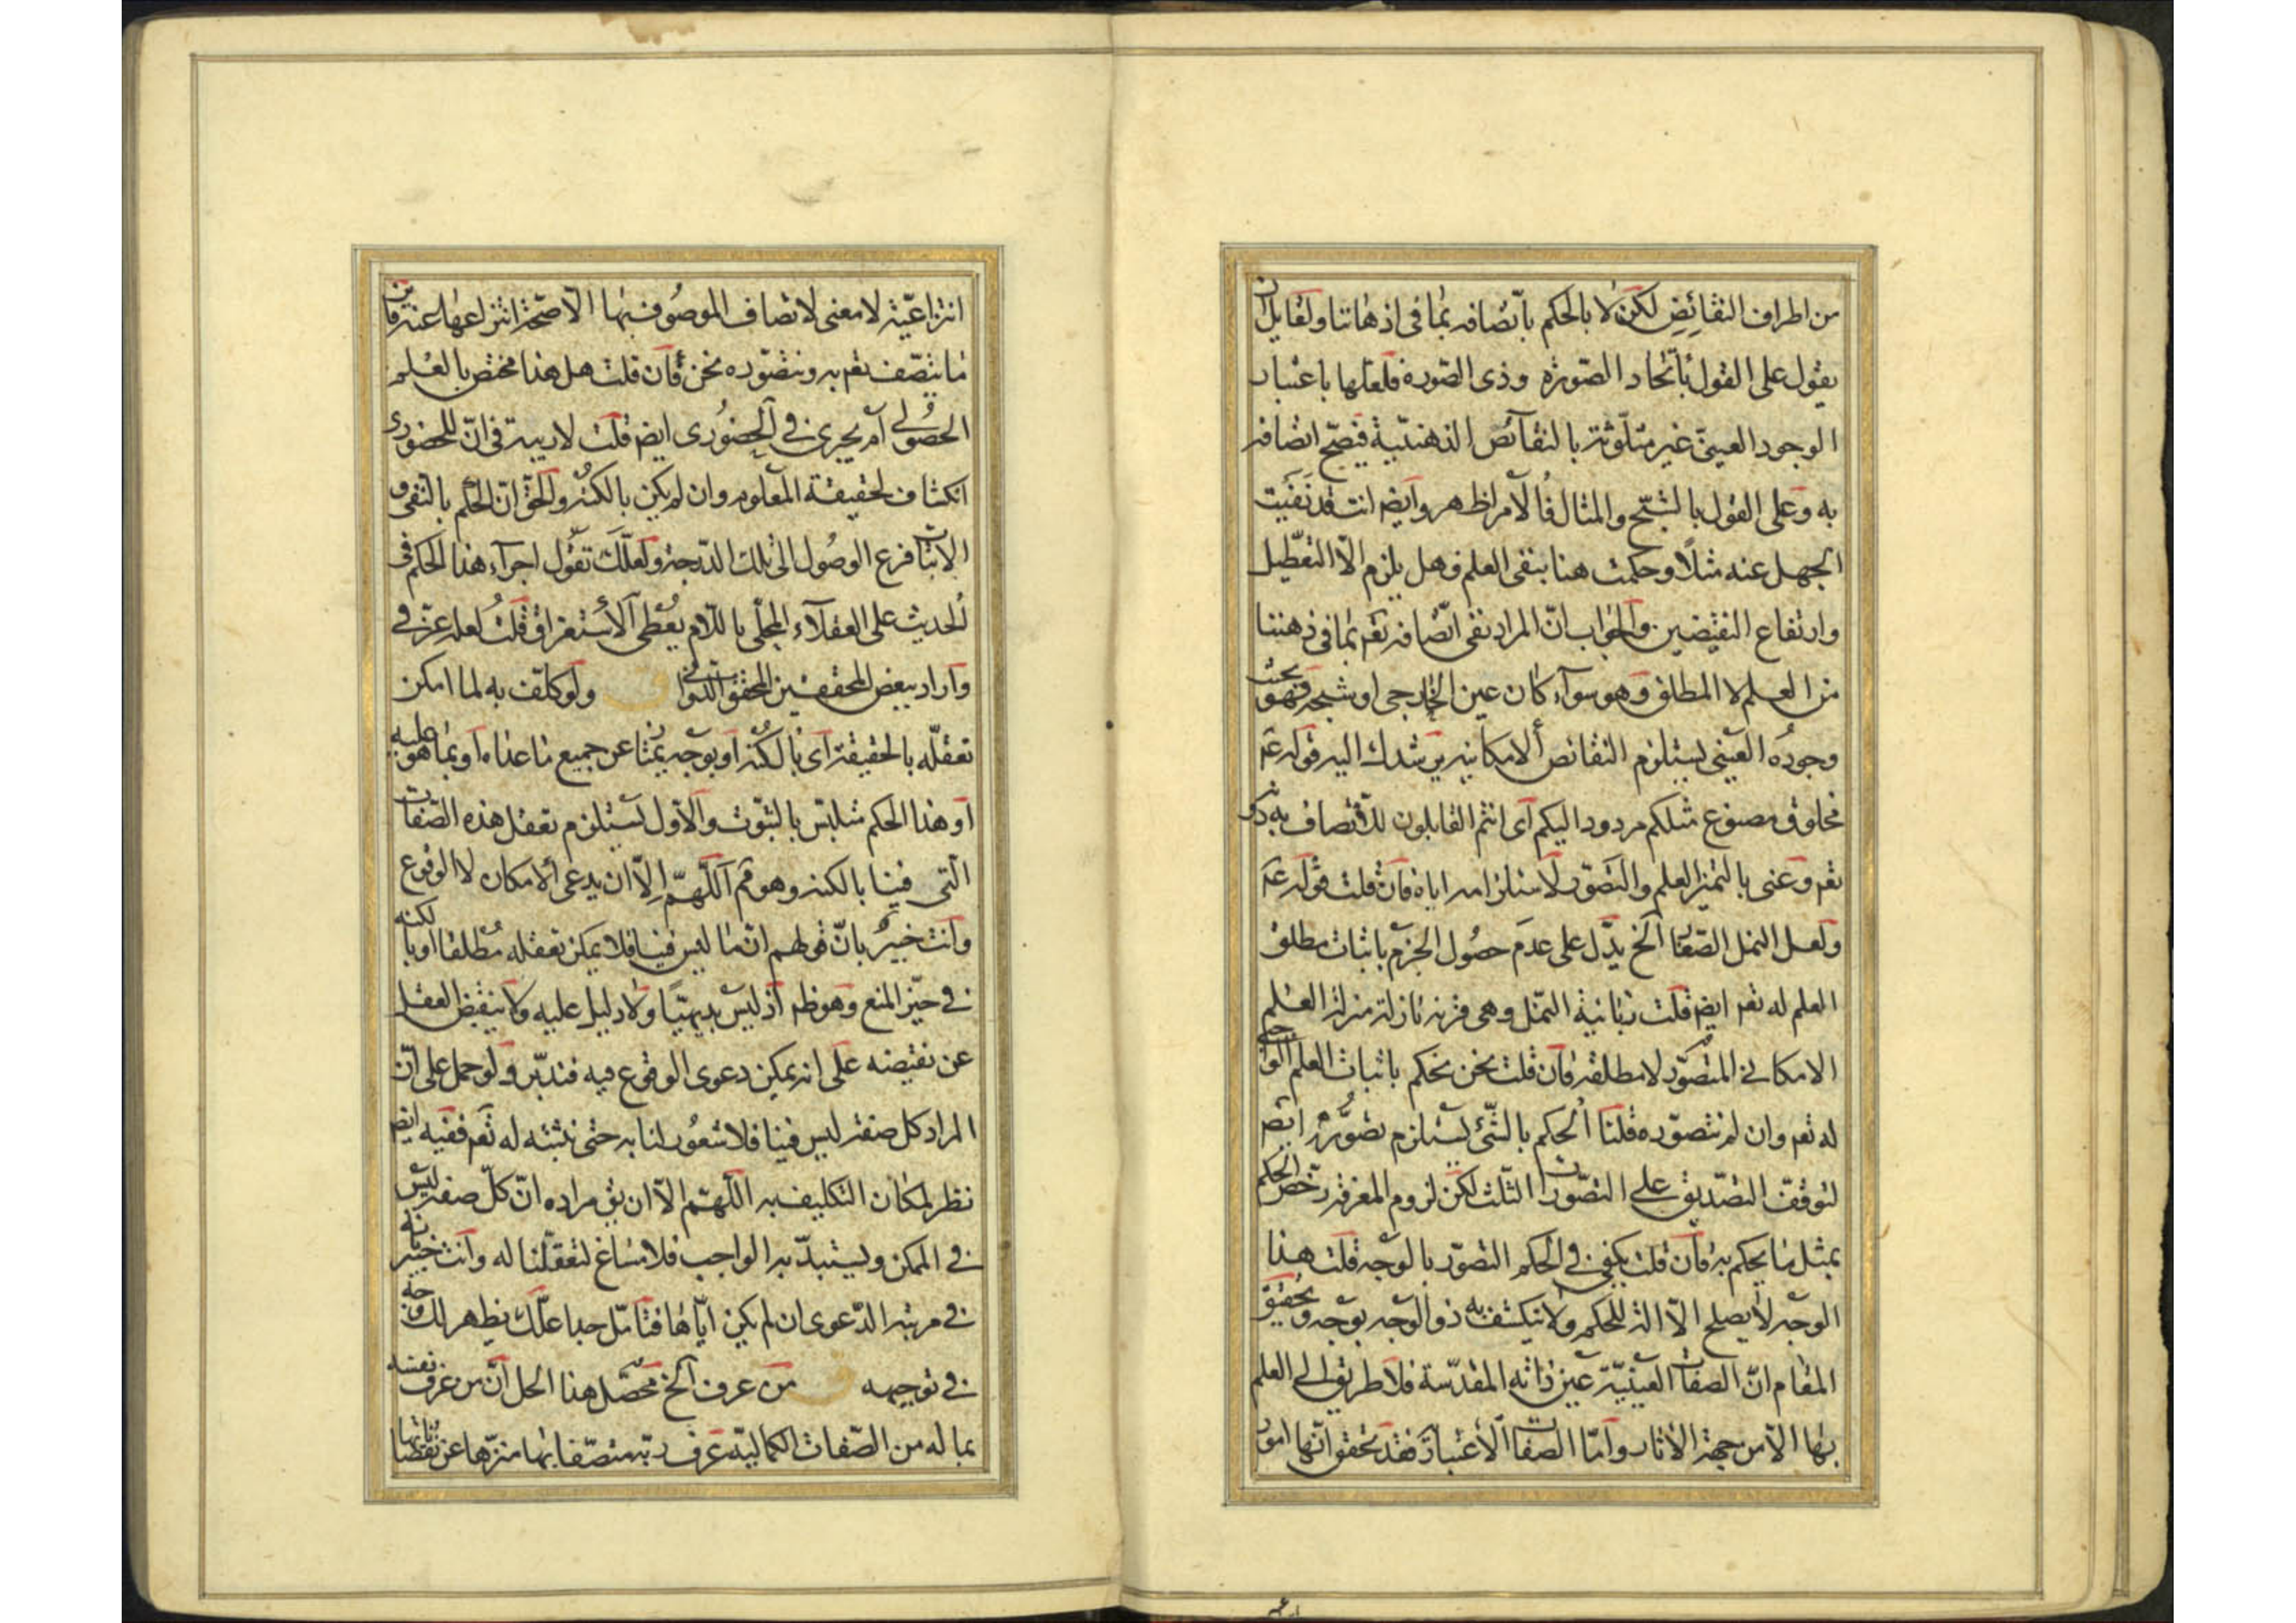 من اطراف النقائض لكن لا بالحكم باتصافه بما فى اذهاننا ولقايل ان
يقول على القول باتحاد الصورة وذى الصورة فلعلها باعتبار
الوجود العينى غير متلوثة بالنقائص الذهنية فيصح اتصافه
به وعلى القول بالشبح والمثال فالامر اظهر وايض انت قد نفيت
الجهل عنه مثلا وحكمت هنا بنفى العلم وهل يلزم الا التعطيل
وارتفاع النقيضين والجواب ان المراد نفى اتصافه تعم بما فى ذهننا
من العلم لا المطلق وهو سوآء كان عين الخارجى او شبحه فهو بحث
وجوده العينى يستلزم النقائص الامكانية يرشدك اليه قوله عم
مخلوق مصنوع مثلكم مردود اليكم اى انتم القابلون للاتصاف به دونه
تعم وعنى بالتميز العلم والتصور لاستلزامه اياه فان قلت قوله عم
ولعل النمل الصغار الخ يدل على عدم حصول الجزم باثبات مطلق
العلم له تعم ايض قلت زبانية النمل وهى قرنه نازلة منزلة العلم
الامكانى المتصور لا مطلقه فان قلت نحن نحكم باثبات العلم الواجبى
له تعم وان لم نتصوره قلنا الحكم بالشئ يستلزم تصوره ايض
لتوقف التصديق على التصورات الثلث لكن لزوم المعرفة رخص الحكم
بمثل ما يحكم به فان قلت يكفى فى الحكم التصور بالوجه قلت هذا
الوجه لا يصلح الا آلة للحكم ولا ينكشف به ذو الوجه بوجه وتحقيق
المقام ان الصفات العينية عين ذاته المقدسة فلا طريق الى العلم
بها الا من جهة الاثار واما الصفات الاعتبارية فقد تحقق انها امور
انتزاعية لا معنى لاتصاف الموصوف بها الا صحة انتزاعها عنه فاين
ما يتصف تعم به ونتصوره نحن فان قلت هل هذا مختص بالعلم
الحصولى ام يجرى فى الحضورى ايض قلت لا ريبة فى ان للحضورى
انكشاف لحقيقة المعلوم وان لم يكن بالكنه والحق ان الحكم بالنفى و
الاثبات فرع الوصول الى تلك الدرجة ولعلك تقول اجرآء هذا الحكم فى
الحديث على العقلآء المحلى باللام يعطى الاستغراق قلت لعله عز فى
وآراد ببعض المحققين المحقق الدوانى ق ولو كلف به لما امكن
تعقله بالحقيقة اى بالكنه او بوجه يمتاز عن جميع ما عداه او بما هو عليه
او هذا الحكم متلبس بالثبوت والاول يستلزم تعقل هذه الصفات
التى فينا بالكنه وهو كم اللهم الا ان يدعى الامكان لا الوقوع
وانت خبير بان قولهم ان ما ليس فينا فلا يمكن تعقله مطلقا او بالكنه
فى حيز المنع وهو ظم اذ ليس بديهيا ولا دليل عليه ولا ينقبض العقل
عن نقيضه على انه يمكن دعوى الوقوع فيه فتدبر ولو حمل على ان
المراد كل صفة ليس فينا فلا شعور لنا به حتى نثبته له تعم ففيه ايض
نظر لمكان التكليف به اللهم الا ان يق مراده ان كل صفة ليس
فى الممكن ويستبد به الواجب فلا مساغ لتعقلنا له وانت خبير بانه
فى مرتبة الدعوى ان لم يكن اياها فتامل جدا علك يظهر لك وجه
فى توجيهه ق من عرف الخ محصل هذا الحل ان من عرف نفسه
بما له من الصفات الكمالية عرف ربه متصفا بها منزها عن نقصاناتها